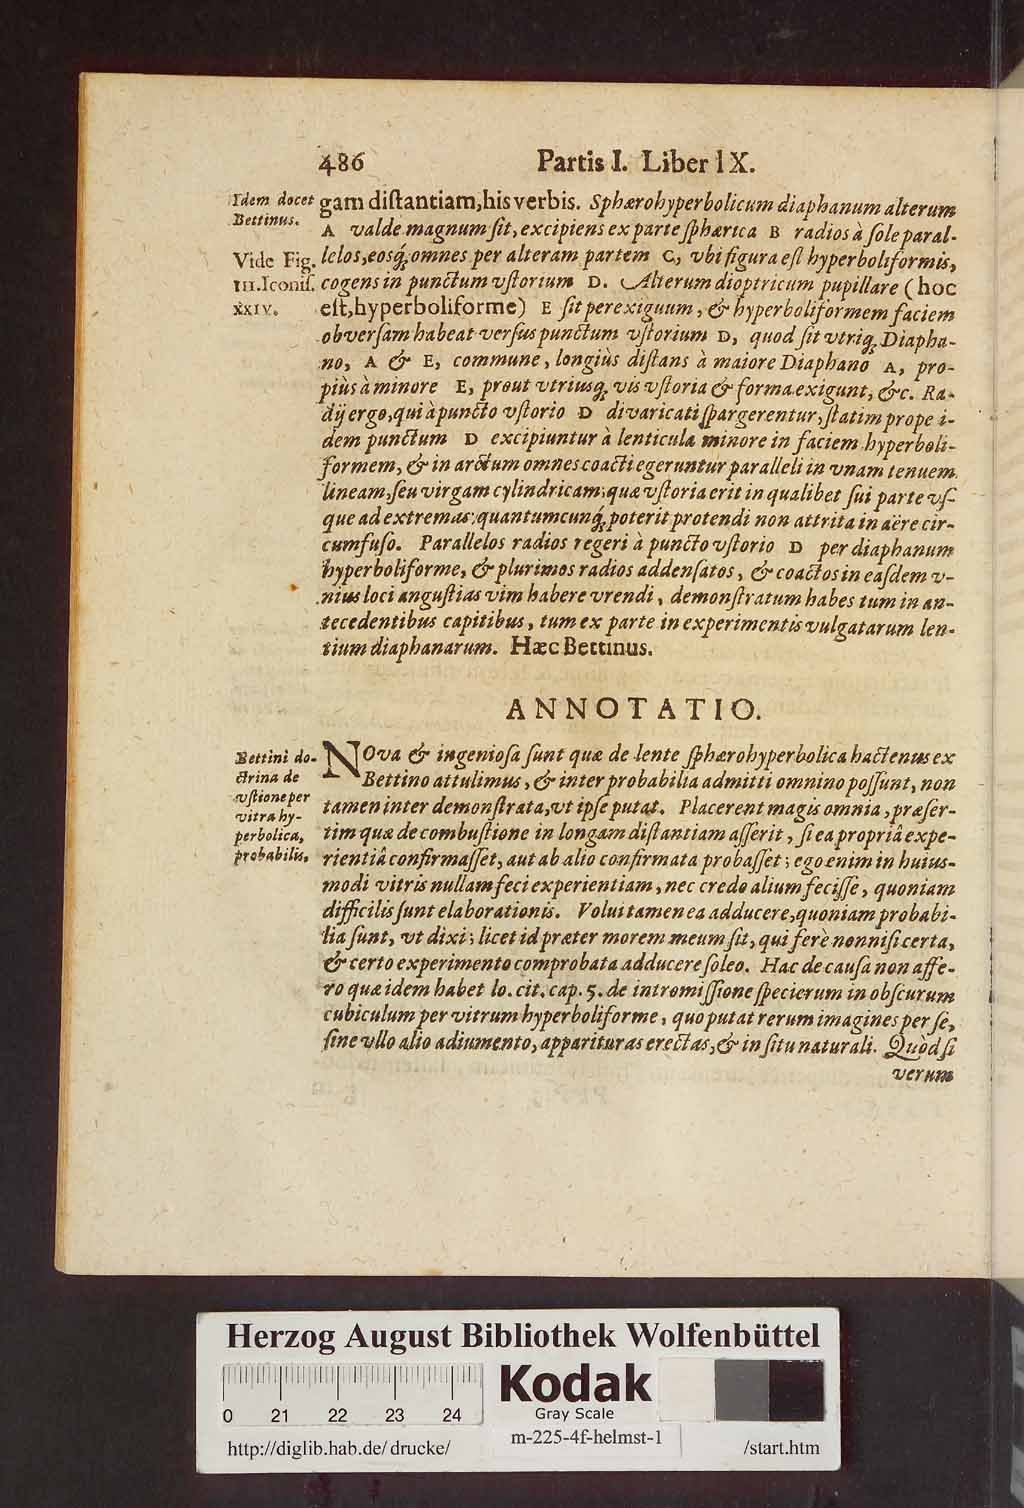 486 Partis I. Liber IX.
Idem docet
Bettinus.
Vide Fig.
III. Iconiſ.
XXIV.
gam diſtantiam, his verbis. Sphærohyperbolicum diaphanum alterum
A valde magnum ſit, excipiens ex parte ſphærica B radios à ſole paral-
lelos, eosq́; omnes per alteram partem C, vbi figura eſt hyperboliformis,
cogens in punctum vſtorium D. Alterum dioptricum pupillare (hoc
eſt, hyperboliforme) E ſit perexiguum, & hyperboliformem faciem
obverſam habeat verſus punctum vſtorium D, quod ſit vtriq; Diapha-
no, A & E, commune, longiùs diſtans à maiore Diaphano A, pro-
piùs à minore E, prout vtriusq; vis vſtoria & forma exigunt, &c. Ra-
dij ergo, qui à puncto vſtorio D divaricati ſpargerentur, ſtatim prope i-
dem punctum D excipiuntur à lenticula minore in faciem hyperboli-
formem, & in arctum omnes coacti egeruntur paralleli in vnam tenuem
lineam, ſeu virgam cylindricam; quæ vſtoria erit in qualibet ſui parte vſ-
que ad extremas; quantumcunq́; poterit protendi non attrita in aëre cir-
cumfuſo. Parallelos radios regeri à puncto vſtorio D per diaphanum
hyperboliforme, & plurimos radios addenſatos, & coactos in eaſdem v-
nius loci anguſtias vim habere vrendi, demonſtratum habes tum in an-
tecedentibus capitibus, tum ex parte in experimentis vulgatarum len-
tium diaphanarum. Hæc Bettinus.
ANNOTATIO.
Bettini do-
ctrina de
vſtione per
vitra hy-
perbolica,
probabilis.
NOva & ingenioſa ſunt quæ de lente ſphærohyperbolica hactenus ex
Bettino attulimus, & inter probabilia admitti omnino poſſunt, non
tamen inter demonſtrata, vt ipſe putat. Placerent magis omnia, præſer-
tim quæ de combuſtione in longam diſtantiam aſſerit, ſi ea propriâ expe-
rientiâ confirmaſſet, aut ab alio confirmata probaſſet; ego enim in huius-
modi vitris nullam feci experientiam, nec credo alium feciſſe, quoniam
difficilis ſunt elaborationis. Volui tamen ea adducere, quoniam probabi-
lia ſunt, vt dixi; licet id præter morem meum ſit, qui ferè nonniſi certa,
& certo experimento comprobata adducere ſoleo. Hac de cauſa non affe-
ro quæ idem habet lo. cit. cap. 5. de intromiſſione ſpecierum in obſcurum
cubiculum per vitrum hyperboliforme, quo putat rerum imagines per ſe,
ſine vllo alio adiumento, apparituras erectas, & in ſitu naturali. Quòd ſi
verum
Herzog August Bibliothek Wolfenbüttel
0 21 22 23 24
Kodak
Gray Scale
http://diglib.hab.de/drucke/ m-225-4f-helmst-1 /start.htm